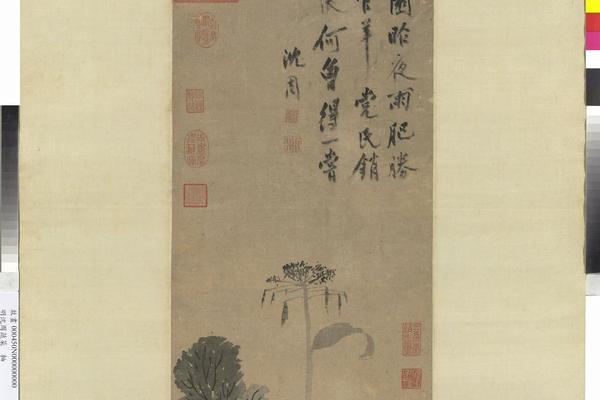 園昨夜雨肥勝
官羊党氏銷
帳何曾得一嘗
沈周
故畫 000450N000000000
明沈周蔬菜 軸